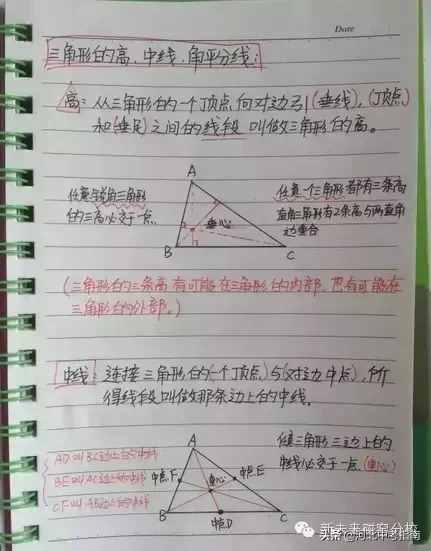 Date
三角形的高、中线、角平分线:
高: 从三角形的一个顶点向对边引(垂线),(顶点)
和(垂足)之间的线段 叫做三角形的高。
A
任意锐角三角形
的三高必交于一点
任意一个三角形都有三条高
直角三角形有2条高与两直角
边重合
垂心
B
C
(三角形的三条高有可能在三角形的内部,也有可能在
三角形的外部。)
中线: 连接三角形的(一个顶点)与(对边中点),所
得线段叫做那条边上的中线。
A
AD叫BC边上的中线
BE叫AC边上的中线
CF叫AB边上的中线
中点F
中点E
任意三角形三边上的
中线必交于一点(重心)
重心
B
中点D
C
新未来研究分校
头条 @河北中考指南